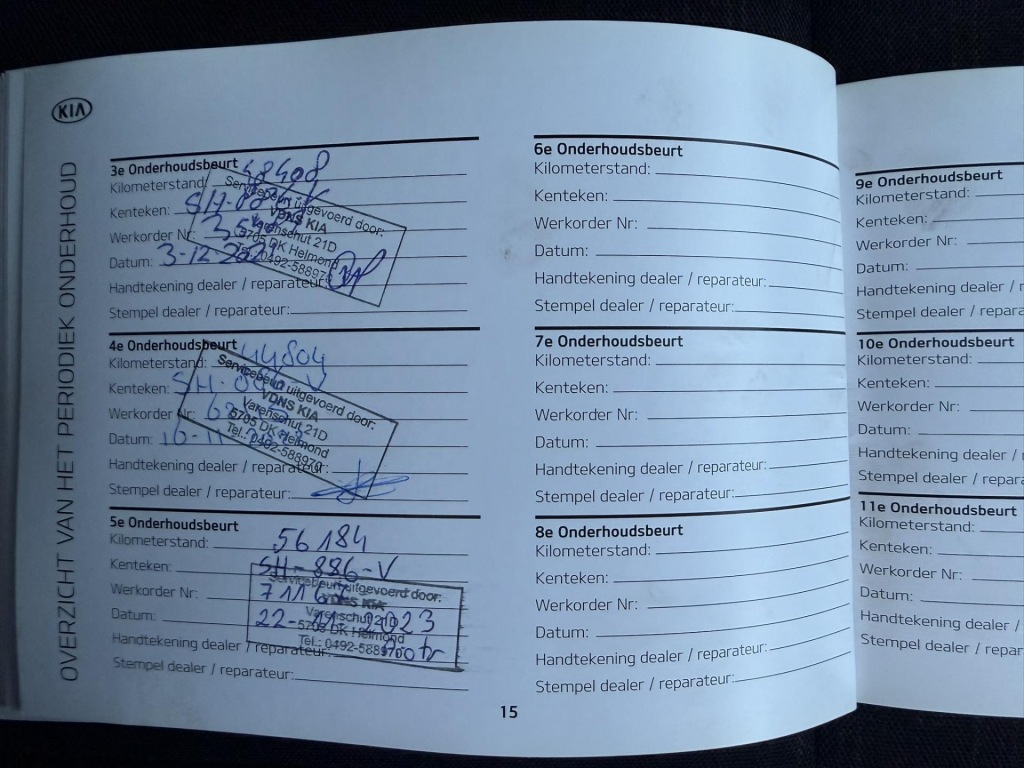 KIA
OVERZICHT VAN HET PERIODIEK ONDERHOUD
3e Onderhoudsbeurt
Kilometerstand: 48408
Kenteken: SH-
Werkorder Nr:
Datum: 3-12-2021
Handtekening dealer / reparateur:
Stempel dealer / reparateur:
Servicebeurt uitgevoerd door:
VDNS KIA
Varenschut 21D
5705 DK Helmond
Tel.: 0492-588970
4e Onderhoudsbeurt
Kilometerstand: 44804
Kenteken: SH-
Werkorder Nr:
Datum: 16-11-
Handtekening dealer / reparateur:
Stempel dealer / reparateur:
Servicebeurt uitgevoerd door:
VDNS KIA
Varenschut 21D
5705 DK Helmond
Tel.: 0492-588970
5e Onderhoudsbeurt
Kilometerstand: 56184
Kenteken: SH-886-V
Werkorder Nr:
Datum: 22-11-2023
Handtekening dealer / reparateur:
Stempel dealer / reparateur:
Servicebeurt uitgevoerd door:
VDNS KIA
Varenschut 21D
5705 DK Helmond
Tel.: 0492-588970
6e Onderhoudsbeurt
Kilometerstand:
Kenteken:
Werkorder Nr:
Datum:
Handtekening dealer / reparateur:
Stempel dealer / reparateur:
7e Onderhoudsbeurt
Kilometerstand:
Kenteken:
Werkorder Nr:
Datum:
Handtekening dealer / reparateur:
Stempel dealer / reparateur:
8e Onderhoudsbeurt
Kilometerstand:
Kenteken:
Werkorder Nr:
Datum:
Handtekening dealer / reparateur:
Stempel dealer / reparateur:
15
9e Onderhoudsbeurt
Kilometerstand:
Kenteken:
Werkorder Nr:
Datum:
Handtekening dealer / r
Stempel dealer / repara
10e Onderhoudsbeurt
Kilometerstand:
Kenteken:
Werkorder Nr:
Datum:
Handtekening dealer / r
Stempel dealer / repara
11e Onderhoudsbeurt
Kilometerstand:
Kenteken:
Werkorder Nr:
Datum:
Handtekening dealer /
Stempel dealer / repara